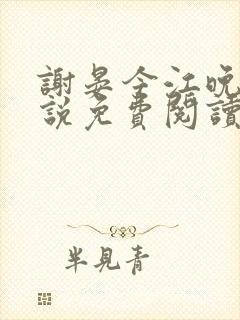 謝晏今江晚
說免費閱讀
半見青